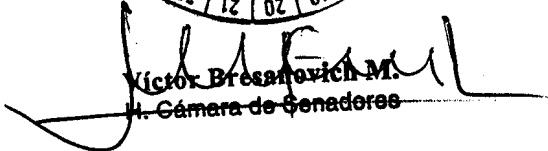 21 20
Víctor Bresanovich M.
H. Cámara de Senadores